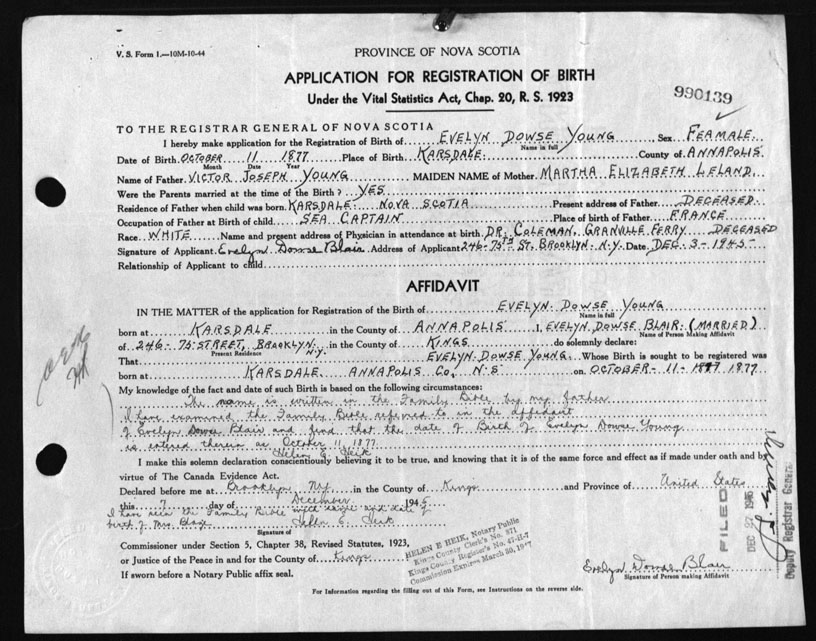 V. S. Form 1.—10M-10-44
PROVINCE OF NOVA SCOTIA
APPLICATION FOR REGISTRATION OF BIRTH
Under the Vital Statistics Act, Chap. 20, R. S. 1923
990139
TO THE REGISTRAR GENERAL OF NOVA SCOTIA
I hereby make application for the Registration of Birth of EVELYN DOWSE YOUNG, Sex FEAMALE.
Name in full
Date of Birth OCTOBER 11 1877 Place of Birth KARSDALE County of ANNAPOLIS
Month Date Year
Name of Father VICTOR JOSEPH YOUNG MAIDEN NAME of Mother MARTHA ELIZABETH LELAND
Were the Parents married at the time of the Birth? YES
Residence of Father when child was born KARSDALE NOVA SCOTIA Present address of Father DECEASED
Occupation of Father at Birth of child SEA CAPTAIN Place of birth of Father FRANCE
Race WHITE Name and present address of Physician in attendance at birth DR. COLEMAN, GRANVILLE FERRY DECEASED
Signature of Applicant Evelyn Dowse Blair Address of Applicant 246-75TH ST. BROOKLYN. N.Y. Date DEC. 3-1945-
Relationship of Applicant to child
AFFIDAVIT
IN THE MATTER of the application for Registration of the Birth of EVELYN. DOWSE YOUNG
Name in full
born at KARSDALE in the County of ANNAPOLIS I, EVELYN DOWSE BLAIR. (MARRIED)
Name of Person Making Affidavit
of 246-75 STREET, BROOKLYN. N.Y. in the County of KINGS do solemnly declare:
Present Residence
That EVELYN DOWSE YOUNG Whose Birth is sought to be registered was
born at KARSDALE ANNAPOLIS CO, N.S on OCTOBER-11-1877 1877
My knowledge of the fact and date of such Birth is based on the following circumstances:
The name is written in the Family Bible by my father
I have examined the Family Bible referred to in the affidavit
of Evelyn Dowse Blair and find that the date of Birth of Evelyn Dowse Young
is entered therein as October 11, 1877.
Helen E. Heik
I make this solemn declaration conscientiously believing it to be true, and knowing that it is of the same force and effect as if made under oath and by
virtue of The Canada Evidence Act.
Declared before me at Brooklyn, NY in the County of Kings and Province of United States
this 7 day of December 1945
I have seen the Family Bible with name and date of
birth of Mrs Blair
Helen E. Heik
Signature of
Commissioner under Section 5, Chapter 38, Revised Statutes, 1923,
or Justice of the Peace in and for the County of Kings
If sworn before a Notary Public affix seal.
HELEN E HEIK, Notary Public
Kings County Clerk's No. 371
Kings County Register's No. 47-H-7
Commission Expires March 30, 1947
FILED
DEC 27 1945
Deputy Registrar General
Evelyn Dowse Blair
Signature of Person making Affidavit
For Information regarding the filling out of this Form, see Instructions on the reverse side.